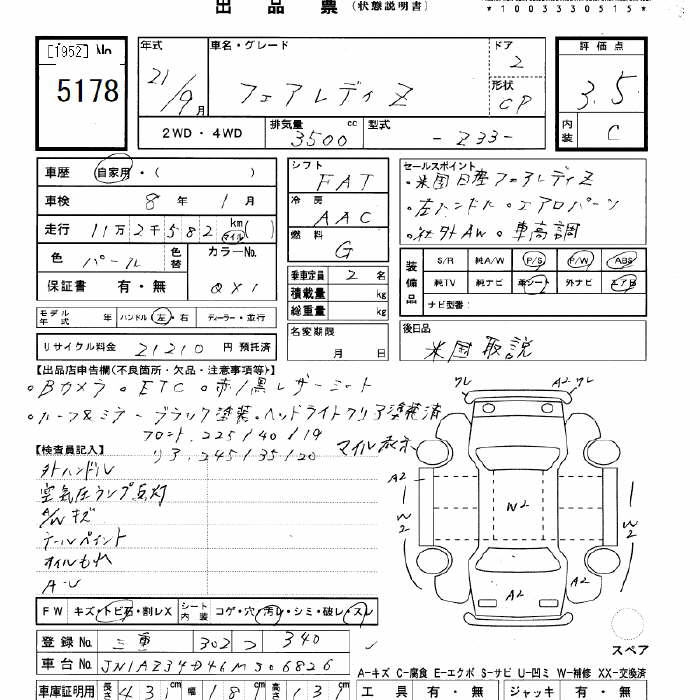 出品票（状態説明書）
*1003330515*
[1952] No
5178
年式 21/9月
車名・グレード フェアレディZ
ドア 2
形状 CP
評価点 3.5
内装 C
2WD・4WD
排気量 3500 cc
型式 -Z33-
車歴 自家用・( )
車検 8年 1月
走行 11万2千582 km(マイル)
色 パール
色替
カラーNo. QX1
保証書 有・無
シフト FAT
冷房 AAC
燃料 G
乗車定員 2名
積載量 kg
総重量 kg
名変期限 月 日
セールスポイント
・米国日産フェアレディZ
・左ハンドル ・エアロパーツ
・社外AW ・車高調
装備品
S/R 純A/W P/S P/W ABS
純TV 純ナビ 革シート 外ナビ エアB
ナビ型番:
モデル年式 年
ハンドル 左・右
ディーラー・並行
リサイクル料金 21210 円 預託済
後日品
米国取説
【出品店申告欄(不良箇所・欠品・注意事項等)】
・Bカメラ ・ETC ・赤/黒レザーシート
・ルーフ&ミラーブラック塗装・ヘッドライトクリア塗装済
フロント.225/40/19
リア.245/35/20
マイル表示
【検査員記入】
外ハンドル
空気圧ランプ点灯
A/Wキズ
テールペイント
オイルもれ
ワレ
A2 ワレ
A2
W2
W2
W2
A2
A2
FW キズ・トビ石・割レX
シート内装 コゲ・穴・汚レ・シミ・破レ・スレ
登録No. 三重 302 つ 340
車台No. JN1AZ34D46M306826
スペア
A-キズ C-腐食 E-エクボ S-サビ U-凹ミ W-補修 XX-交換済
車庫証明用 長さ 431cm 幅 181cm 高さ 131cm
工具 有・無
ジャッキ 有・無